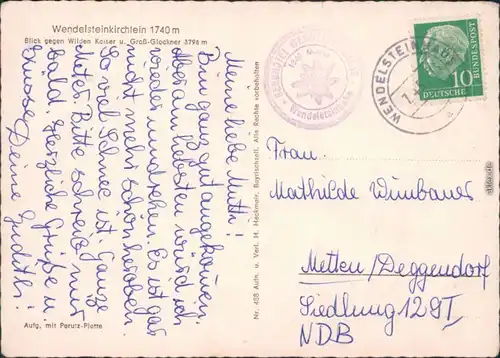 Wendelsteinkirchlein 1740 m
Blick gegen Wilden Kaiser u. Groß-Glockner 3796 m
Meine liebe Mutti!
Bin ganz gut angekommen.
Aber am liebsten würd ich
wieder umdrehen. Es ist gar
nicht mehr schön heroben.
So viel Schnee ist. Ganze
Meter. Bitte schreib mir
bald. Herzliche Grüße u.
Küsse Deine Gudith!
Aufg. mit Perutz-Platte
Nr. 408 Aufn. u. Verl. H. Heckmair, Bayrischzell. Alle Rechte vorbehalten
Wendelstein
WENDELSTEIN
DEUTSCHE
BUNDESPOST
10
Frau
Mathilde Wimbauer
Metten/Deggendorf
Siedlung 129 I
NDB